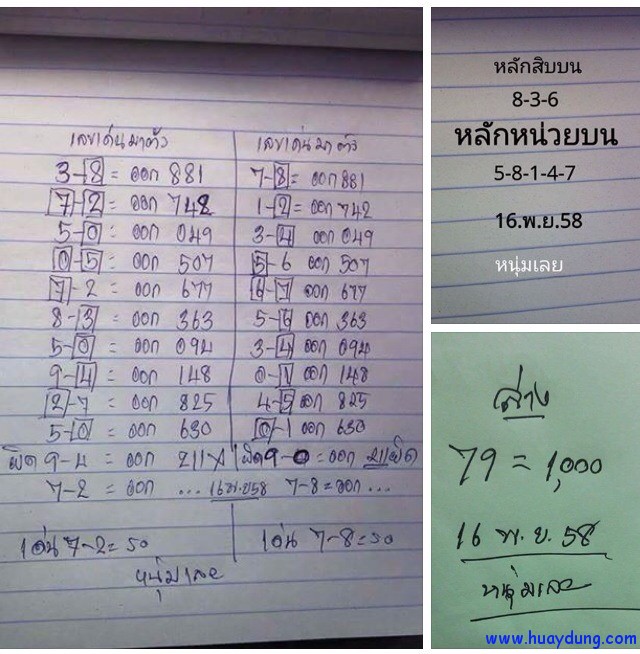 เลขเด่นมาตัว เลขเด่นมาตัว
3-8 = ออก 881 7-8 = ออก 881
7-2 = ออก 742 1-2 = ออก 742
5-0 = ออก 049 3-4 ออก 049
0-5 = ออก 507 5-6 ออก 507
7-2 = ออก 677 6-7 ออก 677
8-3 = ออก 363 5-6 ออก 363
5-0 = ออก 094 3-4 ออก 094
9-4 = ออก 148 0-1 ออก 148
2-7 = ออก 825 4-5 ออก 825
5-0 = ออก 630 0-1 ออก 630
ผิด 9-4 = ออก 211 X ผิด 9-0 = ออก 211 ผิด
7-2 = ออก ... 16พ.ย58 7-8 = ออก ...
เด่น 7-2 = 50 เด่น 7-8 = 50
หนุ่มเลย
หลักสิบบน
8-3-6
หลักหน่วยบน
5-8-1-4-7
16.พ.ย.58
หนุ่มเลย
ล่าง
79 = 1,000
16 พ.ย. 58
หนุ่มเลย
www.huaydung.com